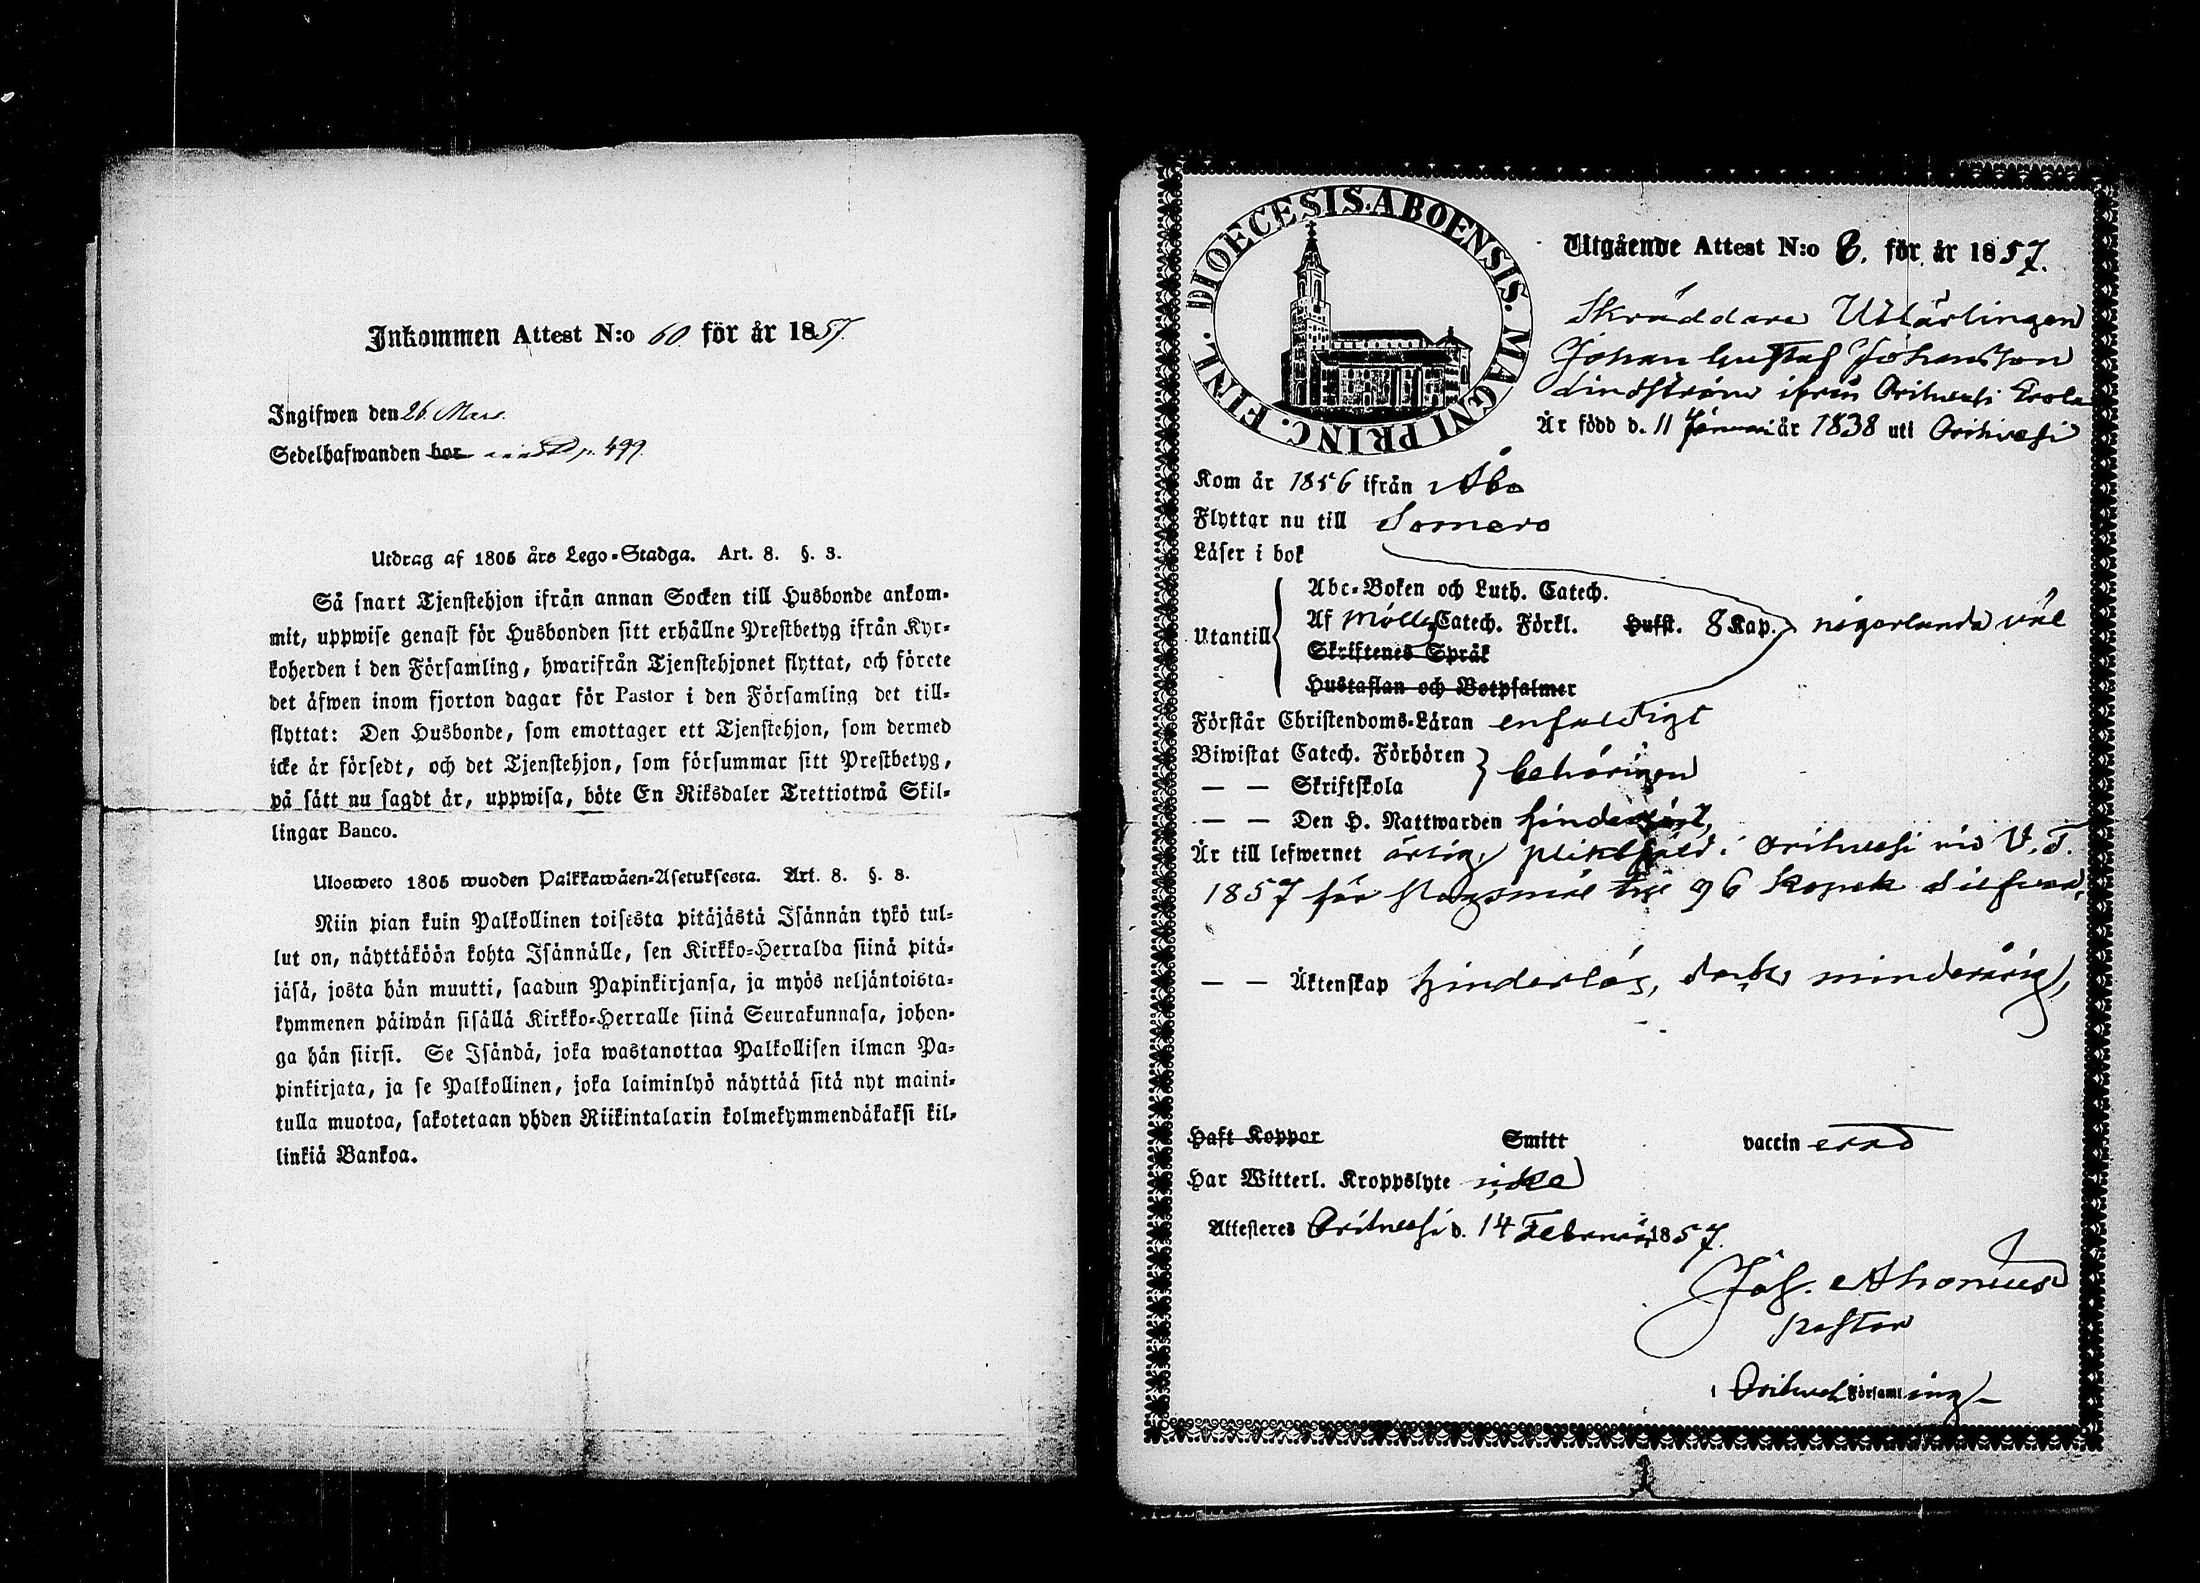 Inkommen Attest N:o 60 för år 1857.
Ingifwen den 26 Mars.
Sedelhafwanden bor p. 499.
Utdrag af 1805 års Lego-Stadga. Art. 8. §. 3.
Så snart Tjenstehjon ifrån annan Socken till Husbonde ankom-
mit, uppwise genast för Husbonden sitt erhållne Prestbetyg ifrån Kyr-
koherden i den Församling, hwarifrån Tjenstehjonet flyttat, och förete
det äfwen inom fjorton dagar för Pastor i den Församling det till-
flyttat: Den Husbonde, som emottager ett Tjenstehjon, som dermed
icke är försedt, och det Tjenstehjon, som försummar sitt Prestbetyg,
på sätt nu sagdt är, uppwisa, böte En Riksdaler Trettiotwå Skil-
lingar Banco.
Ulosweto 1805 wuoden Palkkawäen-Asetuksesta. Art. 8. §. 3.
Niin pian kuin Palkollinen toisesta pitäjästä Isännän tykö tul-
lut on, näyttäköön kohta Isännälle, sen Kirkko-Herralda siinä pitä-
jäsä, josta hän muutti, saadun Papinkirjansa, ja myös neljäntoista-
kymmenen päiwän sisällä Kirkko-Herralle siinä Seurakunnasa, johon-
ga hän siirsi. Se Isändä, joka wastanottaa Palkollisen ilman Pa-
pinkirjata, ja se Palkollinen, joka laiminlyö näyttää sitä nyt maini-
tulla muotoa, sakotetaan yhden Riikintalarin kolmekymmendäkaksi kil-
linkiä Bankoa.
DIOECESIS. ABOENSIS. MAGNI PRINC. FINL.
Utgående Attest N:o 8. för år 1857.
Skräddare Utlärlingen
Johan Gustaf Johansson
Lindström ifrån Orihvesi Erola
Är född d. 11 Januari år 1838 uti Orihvesi
Kom år 1856 ifrån Åbo
Flyttar nu till Somero
Läser i bok
Utantill
Abc-Boken och Luth. Catech.
Af Möllers Catech. Förkl. Husst. 8 Kap. någorlunda väl
Skriftenes Språk
Hustaflan och Botpsalmer
Förstår Christendoms-Läran enfaldigt
Biwistat Catech. Förhören
behörigen
— — Skriftskola
— — Den H. Nattwarden
Är till lefwernet ärlig, pliktfäld i Orihvesi vid V. T.
1857 för slagsmål till 96 kopek silfver,
— — Äktenskap hinderlös, dock minderårig,
Haft Koppor Smitt vaccinerad
Har Witterl. Kroppslyte icke
Attesteres Orihvesi d. 14 Februari 1857.
Joh. Ahonius
pastor
i Orihvesi Församling